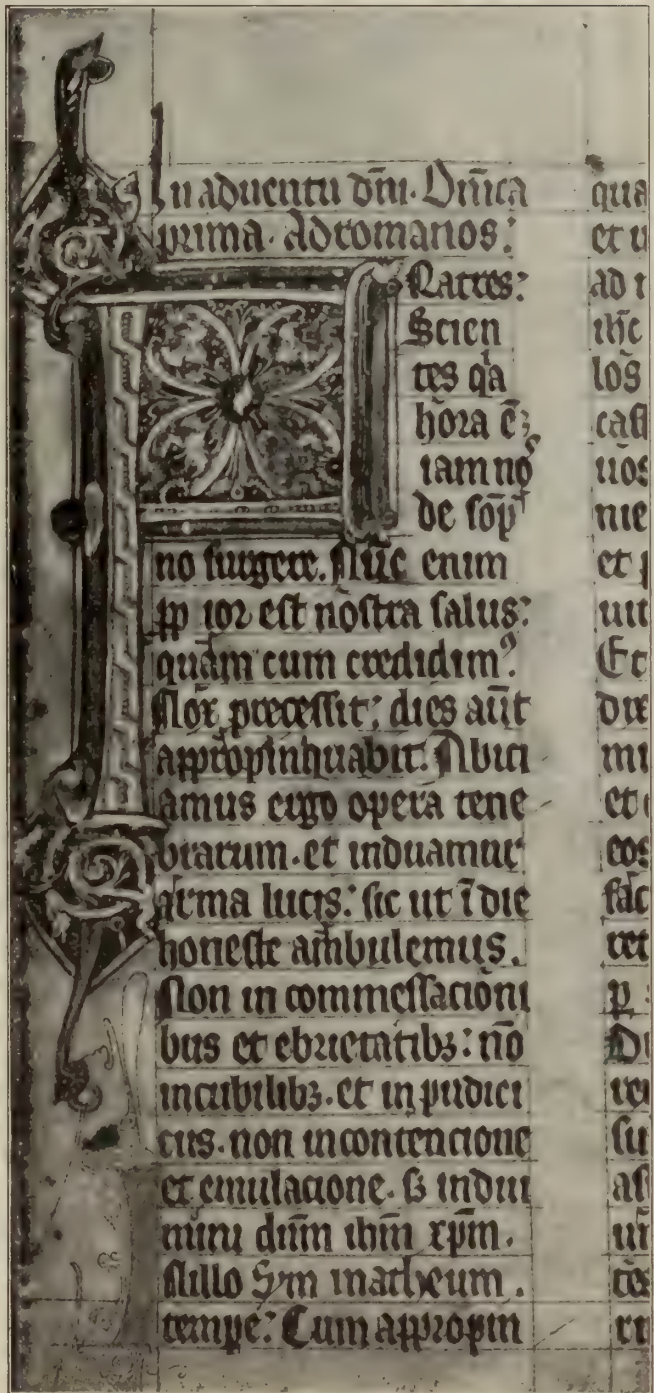 In aduentu dn̄i. Dn̄ica
prima. Ad romanos:
Fratres:
Scien
tes q̇a
hora ē;
iam noˢ
de sōp
no surgere. Nūc enim
ꝓpior est nostra salus:
quam cum credidimꝰ.
Nox precessit; dies aūt
appropinhuabit. Abici
amus ergo opera tene
brarum. et induamur
arma lucis: sic ut ī die
honeste ambulemus.
Non in commessacioni
bus et ebrietatibꝫ: nō
incubilibꝫ. et in pudici
cus. non incontencione
et emulacione. ẞ indui
mini dūm ihm̄ xp̄m.
Sym matheum.
tempe: Cum appropin
qua
et u
ad
ihc
los
cast
uos
nie
et
uit
Et
dix
mi
et
eos
fac
ret
p
Di
su